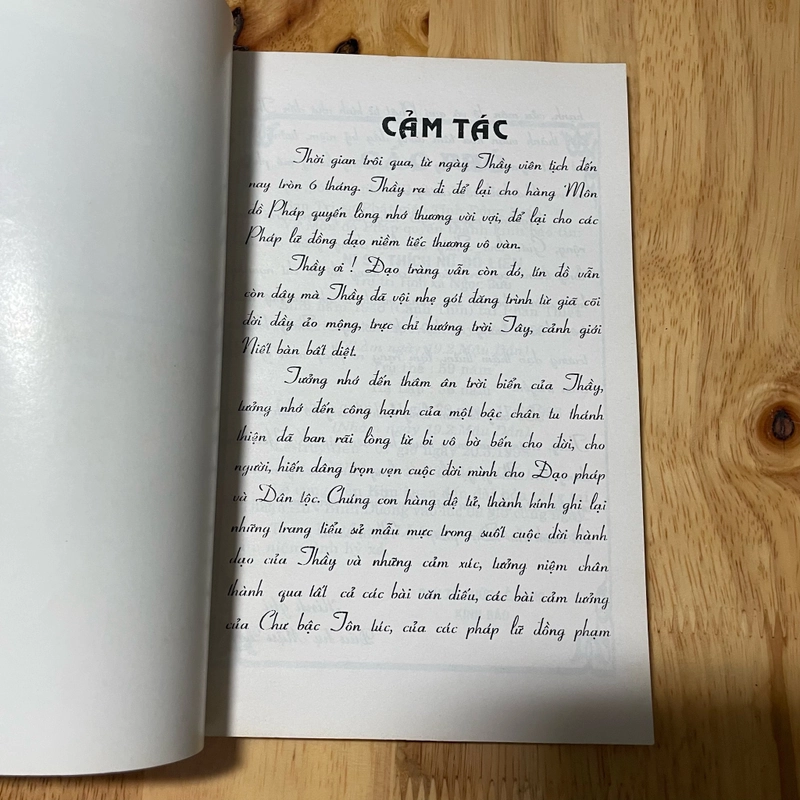 CẢM TÁC
Thời gian trôi qua, từ ngày Thầy viên tịch đến
nay tròn 6 tháng. Thầy ra đi để lại cho hàng Môn
đồ Pháp quyến lòng nhớ thương vời vợi, để lại cho các
Pháp lữ đồng đạo niềm tiếc thương vô vàn.
Thầy ơi ! Đạo tràng vẫn còn đó, tín đồ vẫn
còn đây mà Thầy đã vội nhẹ gót đăng trình từ giã cõi
đời đầy ảo mộng, trực chỉ hướng trời Tây, cảnh giới
Niết bàn bất diệt.
Tưởng nhớ đến thâm ân trời biển của Thầy,
tưởng nhớ đến công hạnh của một bậc chân tu thánh
thiện đã ban rãi lòng từ bi vô bờ bến cho đời, cho
người, hiến dâng trọn vẹn cuộc đời mình cho Đạo pháp
và Dân tộc. Chúng con hàng đệ tử, thành kính ghi lại
những trang tiểu sử mẫu mực trong suốt cuộc đời hành
đạo của Thầy và những cảm xúc, tưởng niệm chân
thành qua tất cả các bài văn điếu, các bài cảm tưởng
của Chư bậc Tôn túc, của các pháp lữ đồng phạm